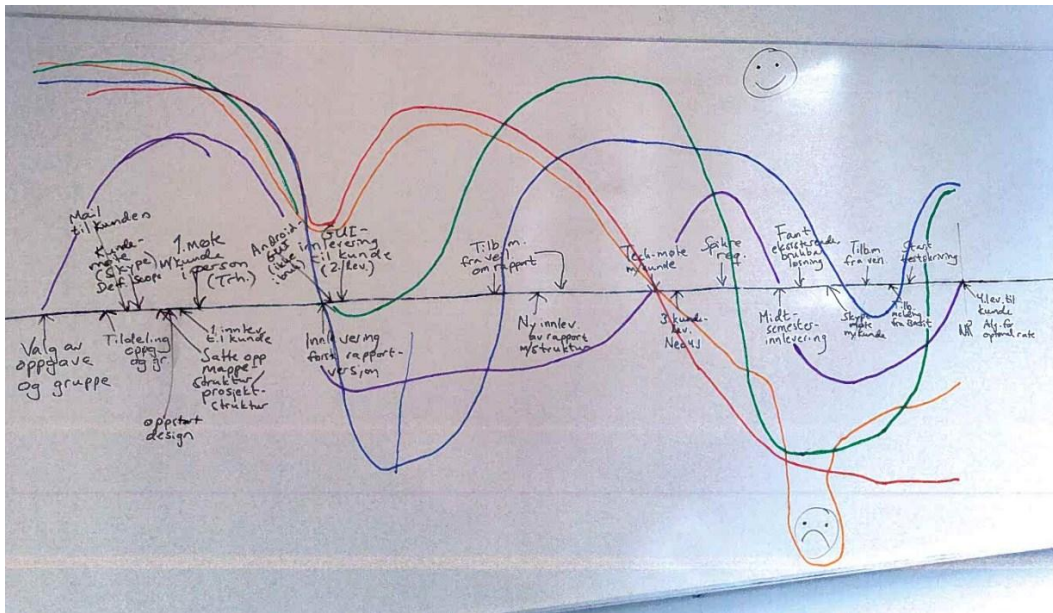 Mail
til kunden
Kunde-
møte
(Skype)
Def. Scope
1. møte
m/kunde
i person
(Trh.)
Android-
GUI
(ikke
GUI-
innlevering
til kunde
(2. lev.)
Tilb.m.
fra veil.
om rapport
Tech-møte
m/kunde
Spikre
req.
Fant
eksisterende
brukbar
løsning
Tilbm
fra vei.
Start
testskriving
Valg av
oppgave
og gruppe
Tildeling
oppg.
og gr.
oppstart
design
1. innlev.
til kunde
Satte opp
mappe-
struktur/
prosjekt-
struktur
Innlevering
første rapport-
versjon
Ny innlev.
av rapport
m/struktur
3. kunde-
lev.
Midt-
semester-
innlevering
Skype
møte
m/kunde
Tilb.
melding
fra
4. lev. til
kunde
Alg. for
optimal rate